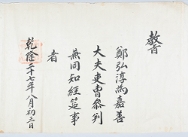 教旨
鄭弘淳爲嘉善
大夫吏曹參判
兼同知經筵事
者
乾隆二十七年八月初三日